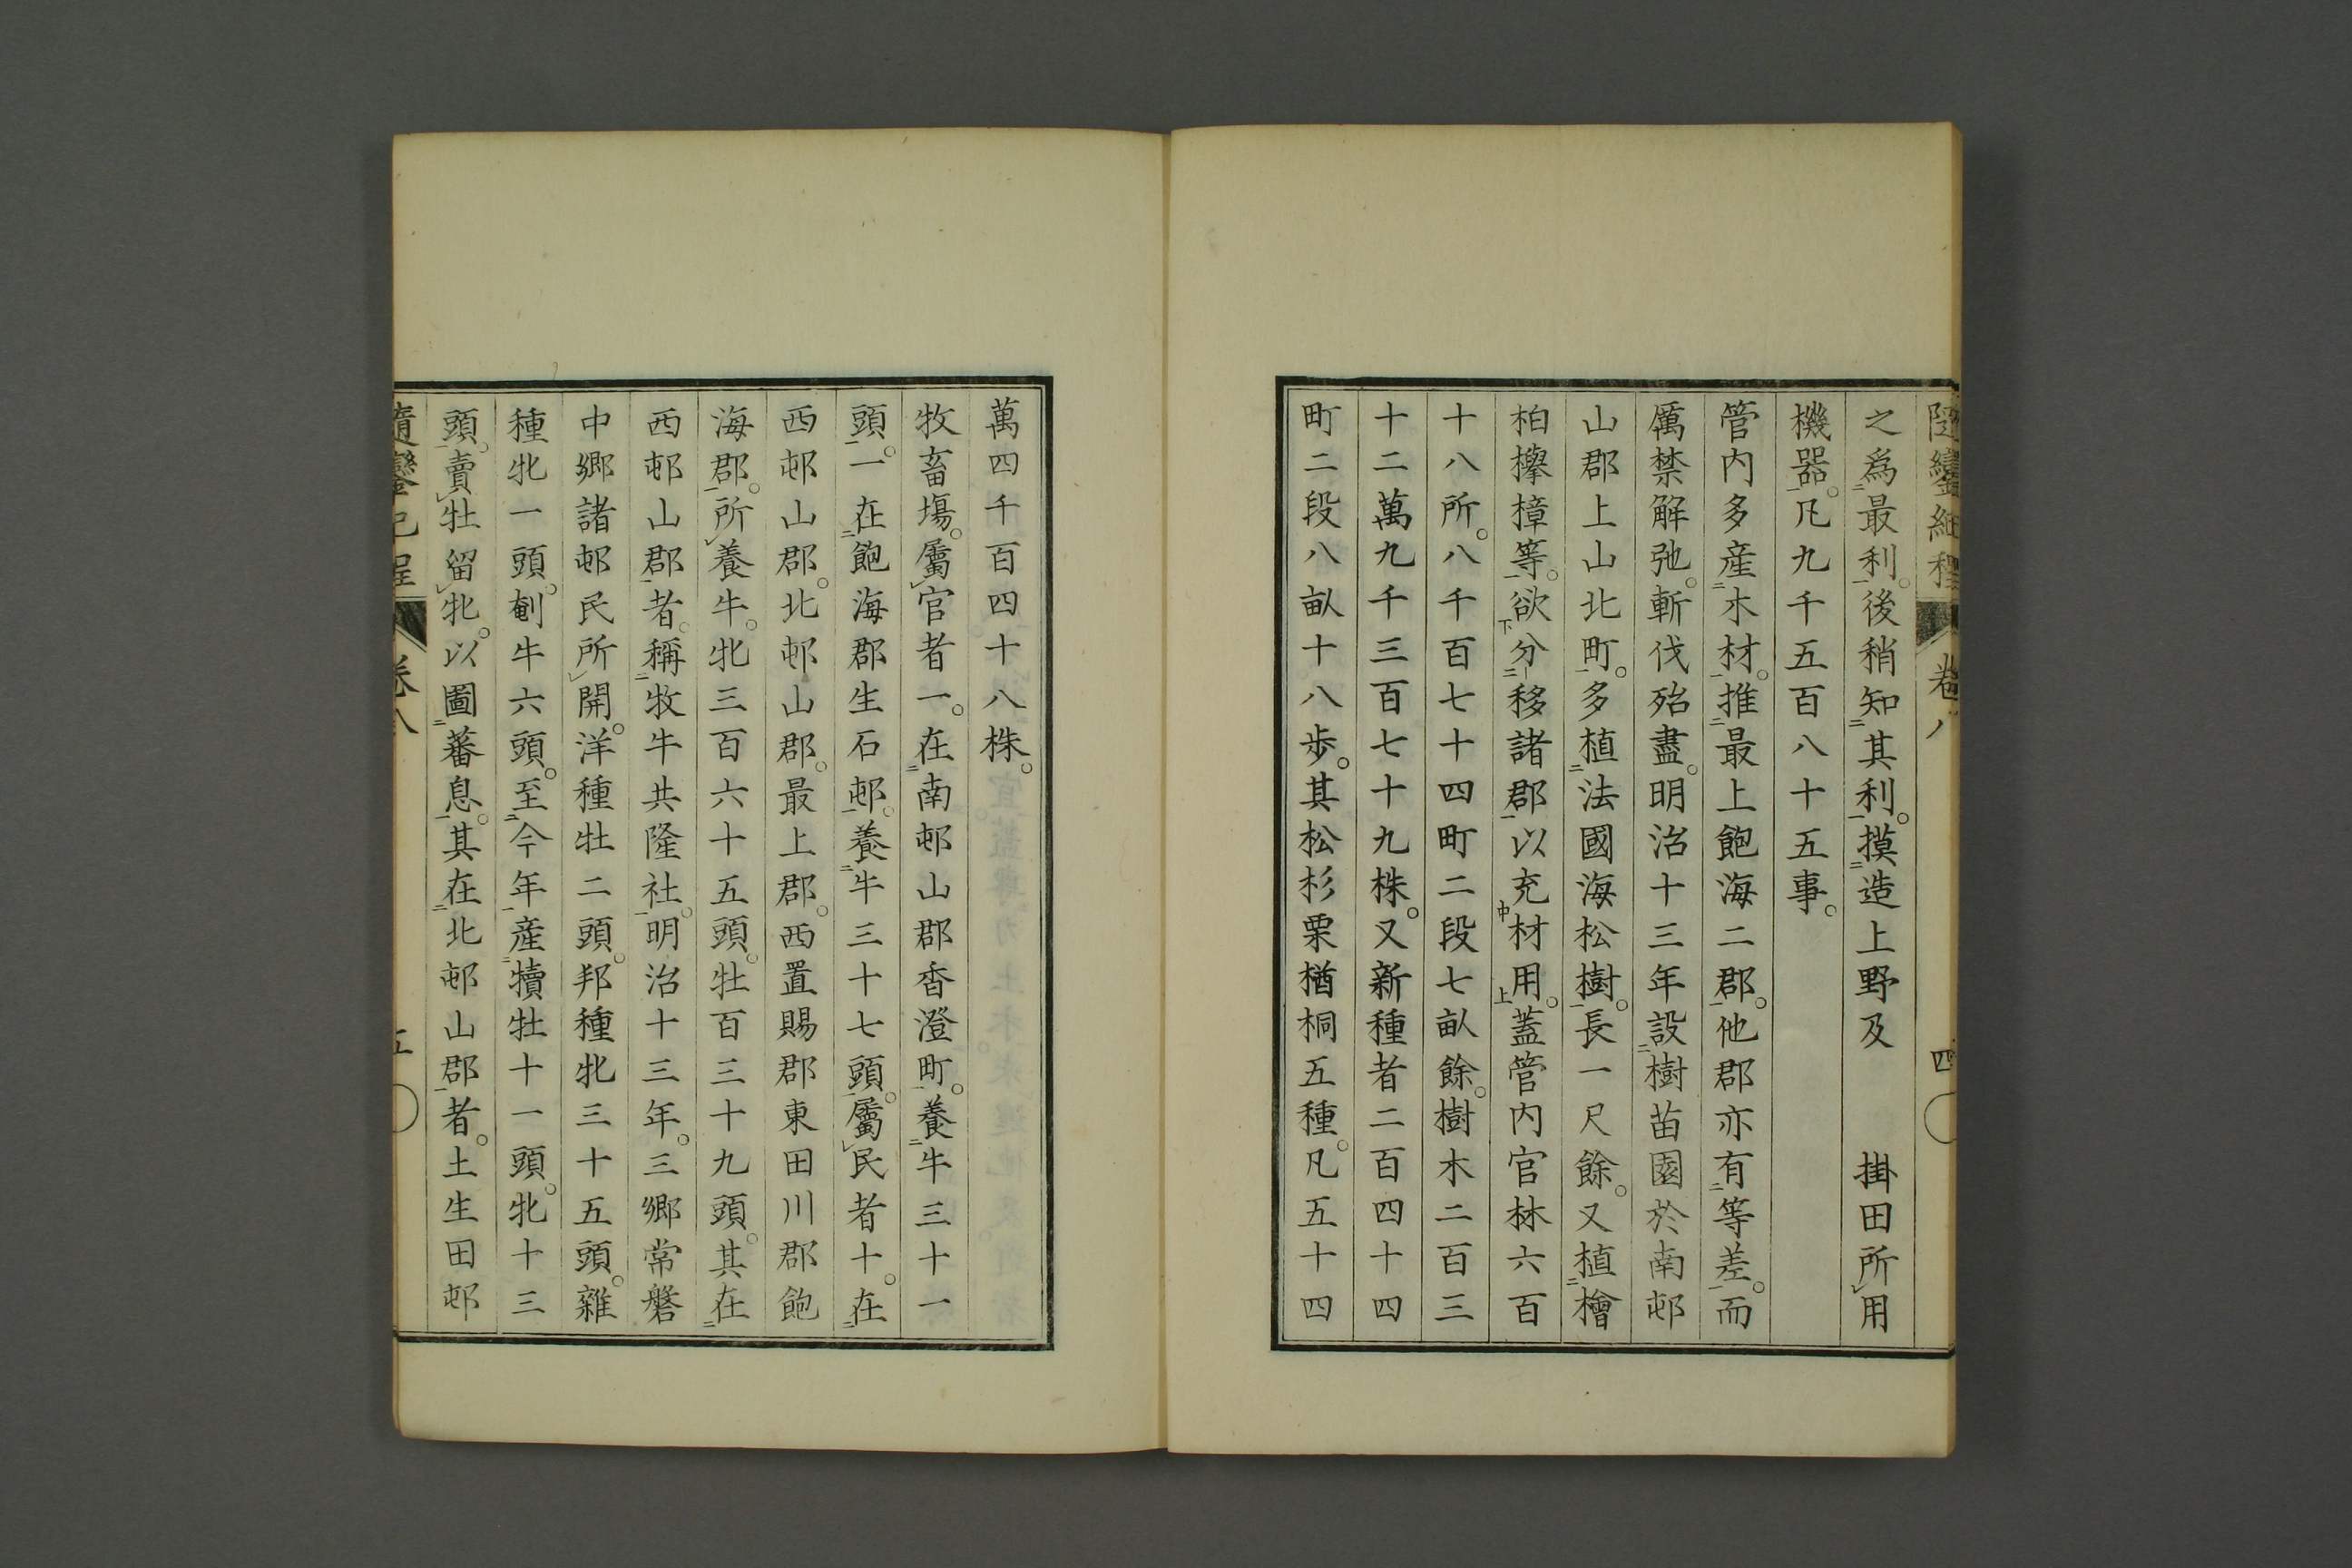 之爲最利。後稍知其利。摸造上野及　掛田所用
機器。凡九千五百八十五事。
管内多産木材。推最上飽海二郡。他郡亦有等差。而
厲禁解弛。斬伐殆盡。明治十三年設樹苗園於南邨
山郡上山北町。多植法國海松樹。長一尺餘。又植檜
柏攑樟等。欲分移諸郡以充材用。蓋管内官林六百
十八所。八千百七十四町二段七畝餘。樹木二百三
十二萬九千三百七十九株。又新種者二百四十四
町二段八畝十八歩。其松杉栗楢桐五種。凡五十四
萬四千百四十八株。
牧畜塲。屬官者一。在南邨山郡香澄町。養牛三十一
頭。一在飽海郡生石邨。養牛三十七頭。屬民者十。在
西邨山郡。北邨山郡。最上郡。西置賜郡東田川郡飽
海郡。所養牛。牝三百六十五頭。牡百三十九頭。其在
西邨山郡者。稱牧牛共隆社。明治十三年。三郷常磐
中郷諸邨民所開。洋種牡二頭。邦種牝三十五頭。雜
種牝一頭。剦牛六頭。至今年産犢牡十一頭。牝十三
頭。賣牡留牝。以圖蕃息。其在北邨山郡者。土生田邨
隨鑾紀程
卷八
四
五